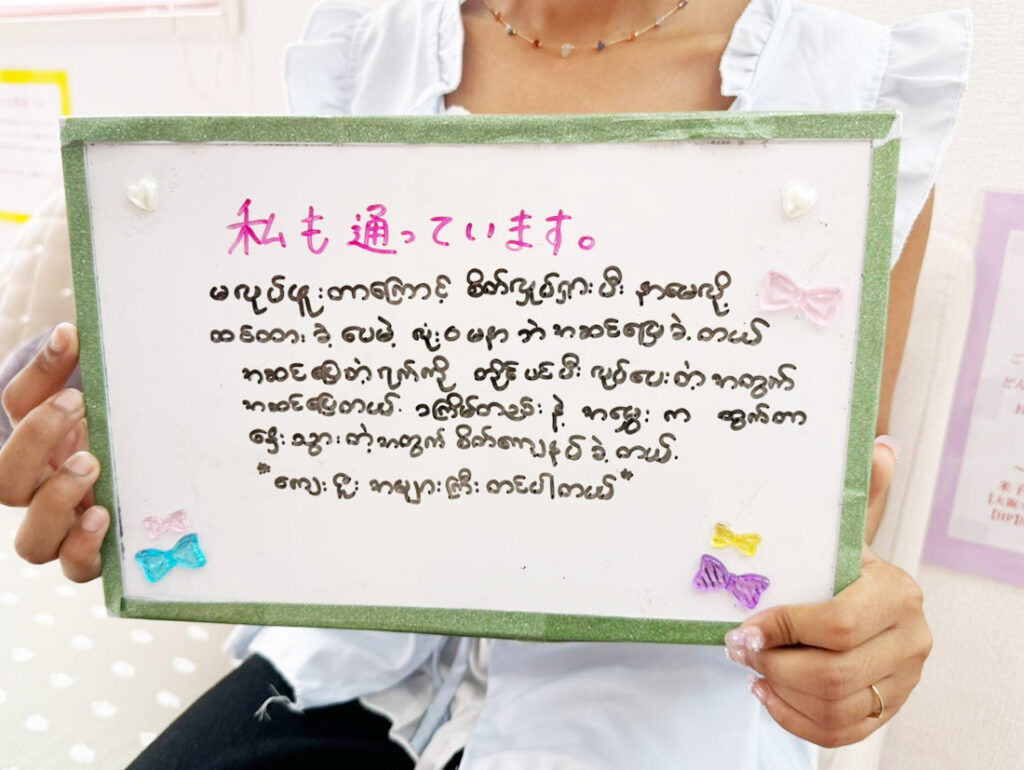 私も通っています。
မလုပ်ဖူးတာကြောင့် စိတ်လှုပ်ရှားပီး နာမေလို့
ထင်ထားခဲ့ပေမဲ့ လုံးဝမနာဘဲ အဆင်ပြေခဲ့တယ်
အဆင်ပြေတဲ့ရက်ကို တိုင်ပင်ပီး လုပ်ပေးတဲ့အတွက်
အဆင်ပြေတယ်. ၁ကြိမ်တည်းနဲ့ အမွှေးက ထွက်တာ
နှေးသွားတဲ့အတွက် စိတ်ကျေနပ်ခဲ့တယ်.
"ကျေးဇူးအများကြီးတင်ပါတယ်"